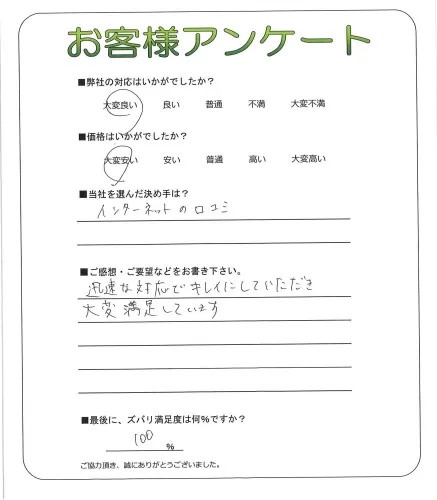 お客様アンケート
■弊社の対応はいかがでしたか?
大変良い 良い 普通 不満 大変不満
■価格はいかがでしたか?
大変安い 安い 普通 高い 大変高い
■当社を選んだ決め手は?
インターネットの口コミ
■ご感想・ご要望などをお書き下さい。
迅速な対応でキレイにしていただき
大変満足しています
■最後に、ズバリ満足度は何%ですか?
100 %
ご協力頂き、誠にありがとうございました。